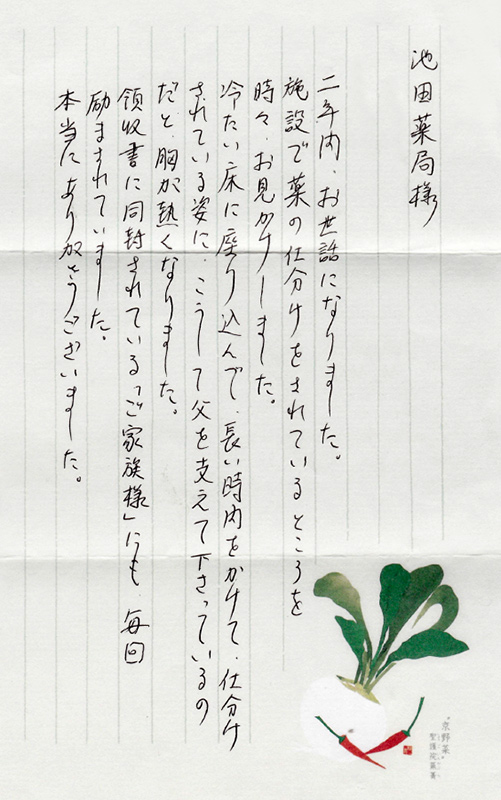 池田薬局様
二年間、お世話になりました。
施設で薬の仕分けをされているところを
時々、お見かけしました。
冷たい床に座り込んで、長い時間をかけて、仕分け
されている姿に、こうして父を支えて下さっているの
だと、胸が熱くなりました。
領収書に同封されている「ご家族様」にも 毎回
励まされていました。
本当にありがとうございました。
"京野菜"
聖護院蕪菁